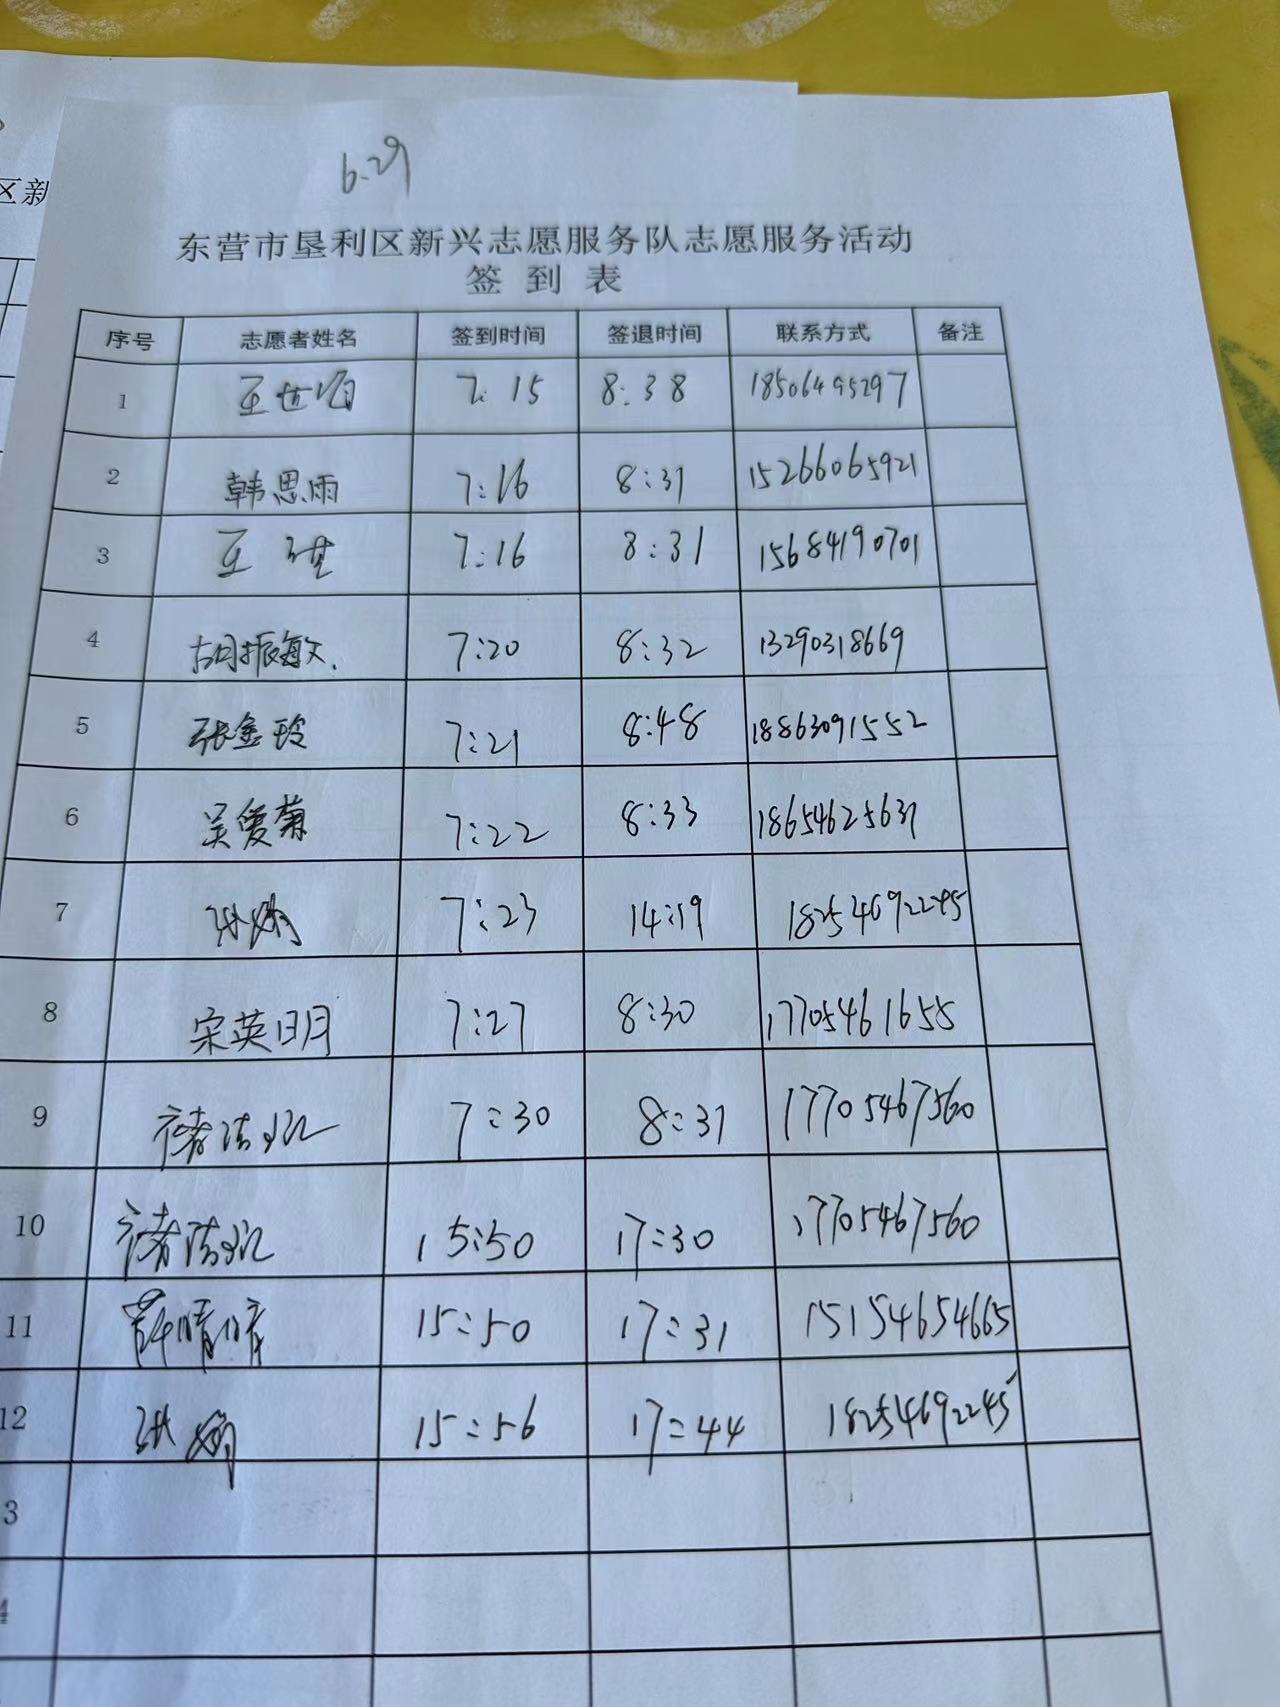 区新
6.29
东营市垦利区新兴志愿服务队志愿服务活动
签到表
序号 志愿者姓名 签到时间 签退时间 联系方式 备注
1 7:15 8:38 18506495297
2 韩思雨 7:16 8:31 15266065921
3 王 7:16 8:31 15684190701
4 胡振敏 7:20 8:32 13290318669
5 张金玲 7:21 8:48 18863091552
6 吴爱菊 7:22 8:33 18654625631
7 7:23 14:19 18254692245
8 宋英明 7:27 8:30 17705461655
9 褚 7:30 8:31 17705467560
10 褚 15:50 17:30 17705467560
11 薛晴晴 15:50 17:31 15154654665
12 15:56 17:44 18254692245
3